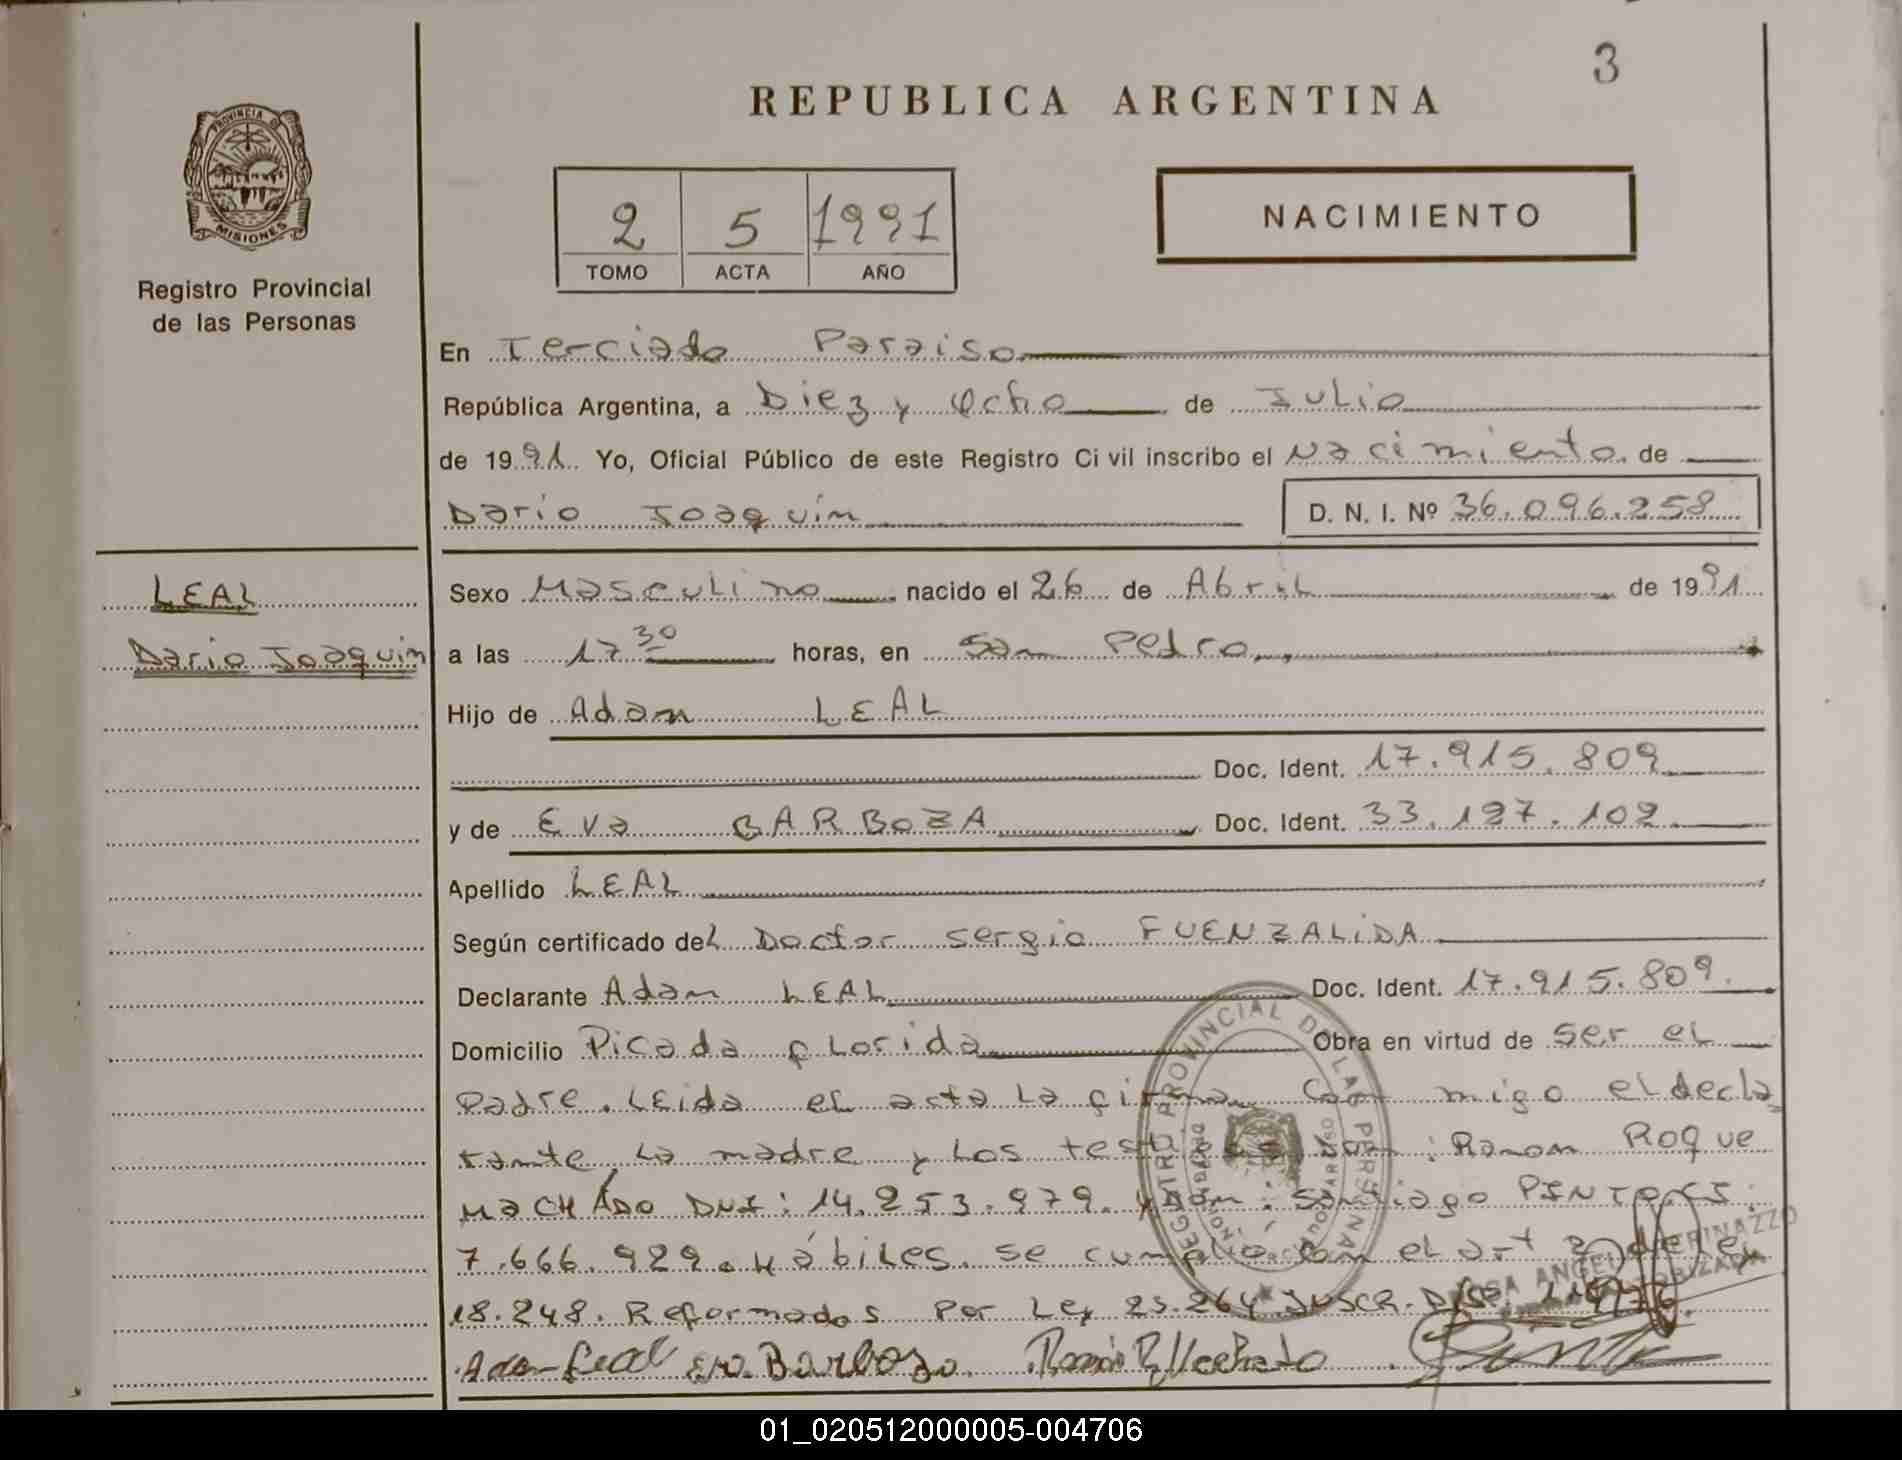 3
REPUBLICA ARGENTINA
PROVINCIA DE
MISIONES
Registro Provincial
de las Personas
2 5 1991
TOMO ACTA AÑO
NACIMIENTO
En Terciado Paraiso
República Argentina, a Diez y Ocho de Julio
de 1991. Yo, Oficial Público de este Registro Civil inscribo el Nacimiento de
Dario Joaquin D. N. I. Nº 36.096.258
LEAL
Dario Joaquin
Sexo Masculino nacido el 26 de Abril de 1991
a las 17 30 horas, en San Pedro
Hijo de Adan LEAL
Doc. Ident. 17.915.809
y de Eva BARBOZA Doc. Ident. 33.197.102
Apellido LEAL
Según certificado del Doctor Sergio FUENZALIDA
Declarante Adan LEAL Doc. Ident. 17.915.809.
Domicilio Picada Florida Obra en virtud de ser el
Padre. Leida el acta La firman Con migo el decla
rante, La madre y Los testigos Son: Ramon Roque
MACHADO DNI: 14.253.979. y Don: Santiago PINTO CI:
7.666.929. Hábiles. se cumplio con el art 2 de Ley
18.248. Reformados Por Ley 23.264 Juscr. Disp.
Adan Leal Eva Barboza. Ramón R Machado
REGISTRO PROVINCIAL DE LAS PERSONAS
01_020512000005-004706